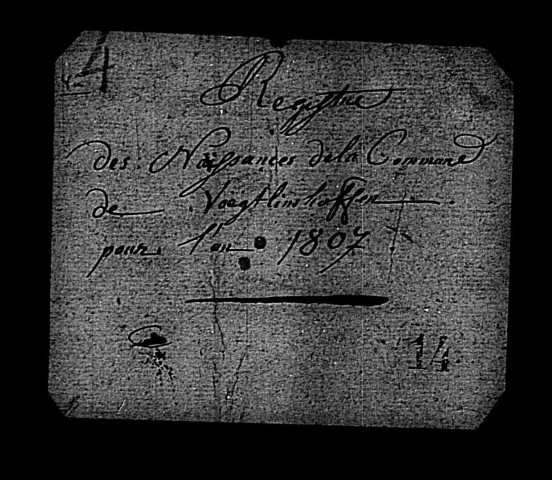 4
Registre
des Naissances dela Commune
de Voegtlinshoffen
pour l'an 1807
14